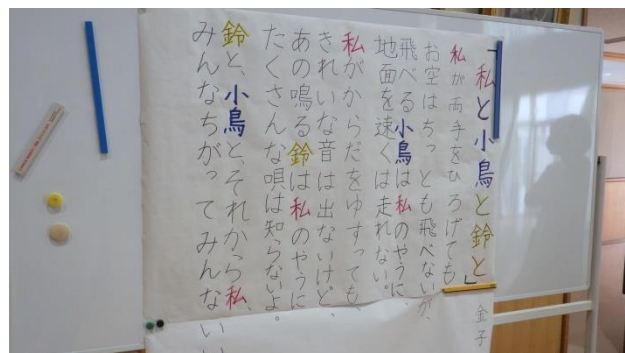 「私と小鳥と鈴と」
金子
私が両手をひろげても、
お空はちっとも飛べないが、
飛べる小鳥は私のやうに
地面を速くは走れない。
私がからだをゆすっても、
きれいな音は出ないけど、
あの鳴る鈴は私のやうに
たくさんな唄は知らないよ。
鈴と、小鳥と、それから私、
みんなちがってみんないい